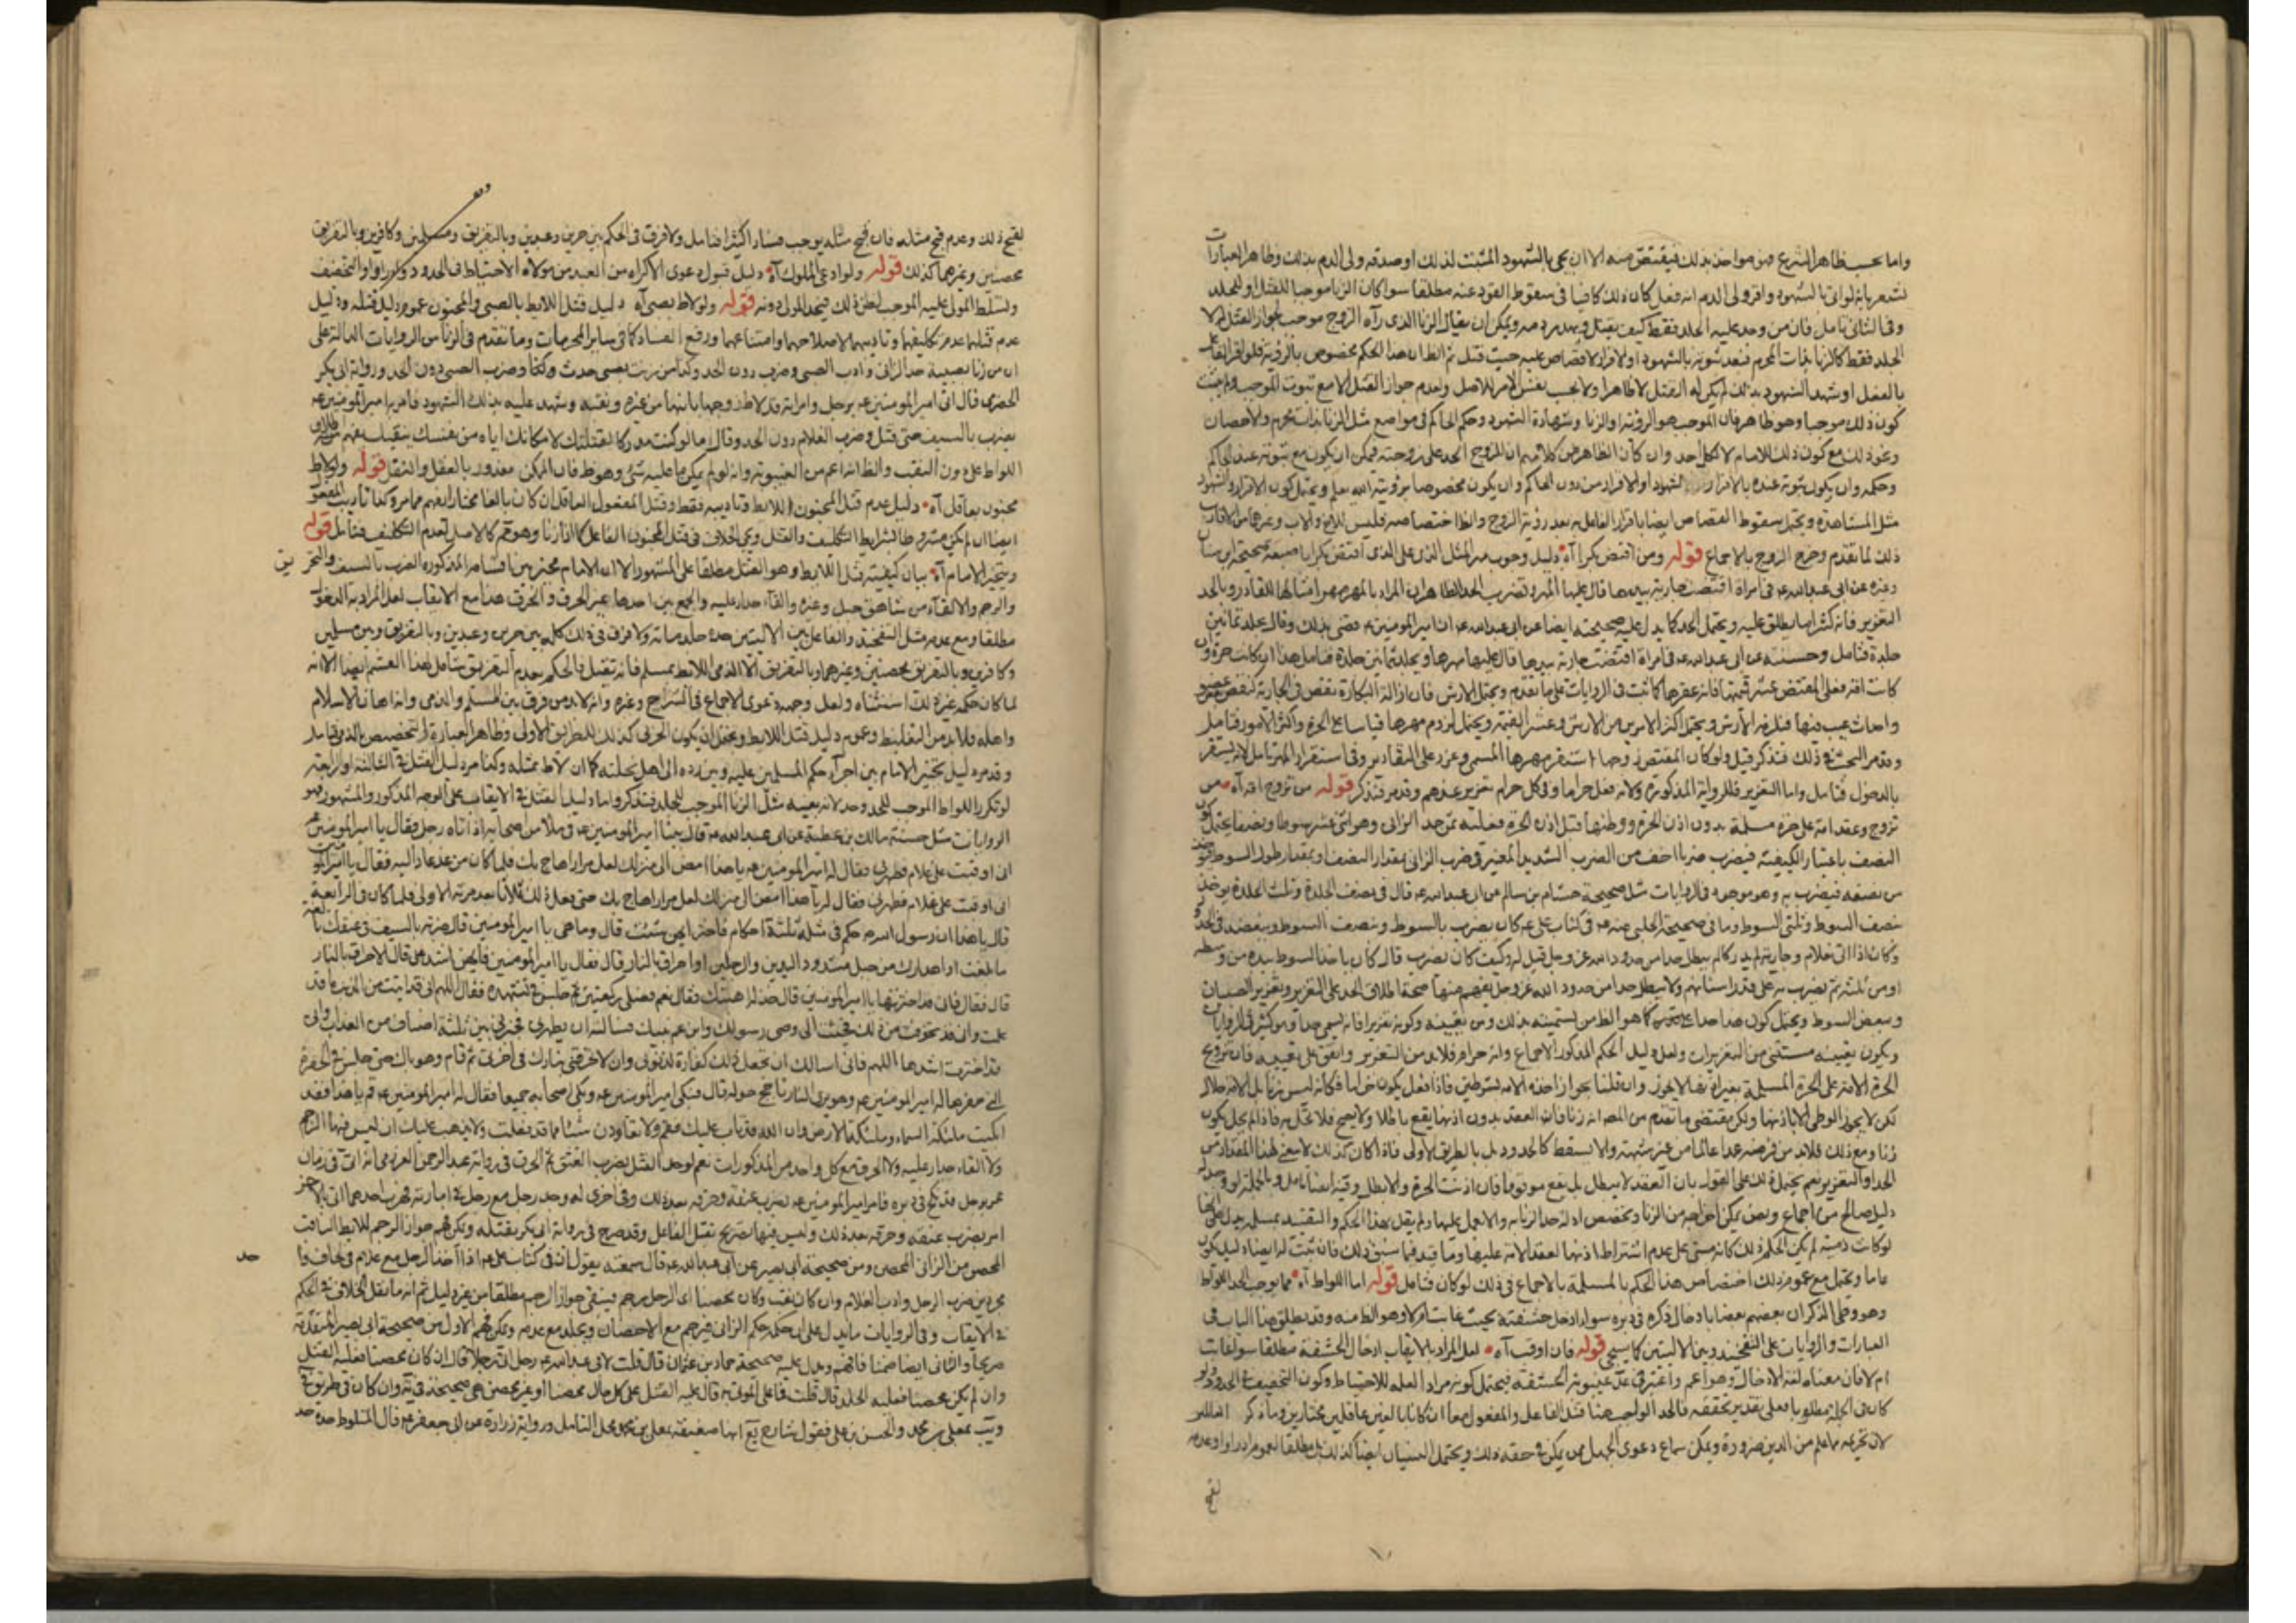 واما بحسب ظاهر الشرع فهو مواخذ بذلك فيقتص منه الا ان يجئ بالشهود المثبت لذلك او صدقه ولى الدم بذلك وظاهر العبارات
تشعر بانه لو اتى بالشهود واقر ولى الدم انه فعل كان ذلك كافيا فى سقوط القود عنه مطلقا سوا كان الزنا موجبا للقتل او للجلد
وفى الثانى تامل فان من وجد عليه الجلد فقط كيف يقتل ويهدر دمه ويمكن ان يقال الزنا الذى رآه الزوج موجب لجواز القتل لا
الجلد فقط كالزنا بذات المحرم فبعد ثبوته بالشهود او الاقرار لا قصاص عليه حيث قتل ثم الظ ان هذا الحكم مخصوص بالرؤية فلو اقر الفاعل
بالفعل او شهد الشهود بذلك لم يكن له القتل لا ظاهرا ولا بحسب نفس الامر للاصل وعدم جواز القتل الا مع ثبوت الموجب ولم يثبت
كون ذلك موجبا وهو ظاهر فان الموجب هو الرؤية او الزنا وشهادة الشهود وحكم الحاكم فى مواضع مثل الزنا بذات محرم والاحصان
ونحو ذلك مع كون ذلك للامام لا لكل احد وان كان الظاهر من كلامهم ان للزوج الحد على زوجته فيمكن ان يكون مع ثبوته عند الحاكم
وحكمه وان يكون ثبوته عنده بالاقرار الشهود او الاقرار من دون الحاكم وان يكون مخصوصا برؤيته الله يعلم ويحتمل كون الاقرار والشهود
مثل المشاهدة ويحتمل سقوط القصاص ايضا باقرار الفاعل به بعد رؤية الزوج والظ اختصاصه فليس للابن والاب وغيرها من الاقارب
ذلك لما تقدم وخرج الزوج بالاجماع قوله ومن افتض بكرا آه دليل وجوب مهر المثل الذى على الذى افتض بكرا باصبعه صحيحة ابن سنان
وغيره عن ابى عبدالله عه فى امراة افتضت جارية بيدها قال عليها المهر وتضرب الحد الظاهر ان المراد بالمهر مهر امثالها للتبادر وبالحد
التعزير فانه كثيرا ما يطلق عليه ويحتمل الحد كما يدل عليه صحيحته ايضا عن ابى عبدالله عه ان امير المومنين عه قضى بذلك وقال تجلد ثمانين
جلدة فتامل وحسنته عن ابى عبدالله عه فى امراة افتضت جارية بيدها قال عليها مهرها ويجلد ثمانين جلدة فتامل هذا ان كانت حرة وان
كانت امة فعلى المفتض عشر قيمتها فانه عقرها كما ثبت فى الروايات على ما تقدم ويحتمل الارش فان ازالة البكارة نقص فى الجارية كنقص عضو
واحداث عيب فيها فيلزمه الارش ويحتمل اكثر الامرين من الارش وعشر القيمة ويحتمل لزوم مهرها قياسا على الحرة واكثر الامور فتامل
وقد مر البحث فى ذلك فتذكر قيل ولو كان المفتض زوجها استقر مهرها المسمى وعزر على التقادير وفى استقرار المهر تامل لانه يستقر
بالدخول فتامل واما التعزير فللرواية المذكورة ولانه فعل حراما وفى كل حرام تعزير عندهم وقد مر فتذكر قوله من تزوج امة آه من
تزوج وعقد امة على حرة مسلمة بدون اذن الحرة ووطئها قبل اذن الحرة فعليه ثمن حد الزانى وهو اثنى عشر سوطا ونصفا يحتمل كون
النصف باعتبار الكيفية فيضرب ضربا اخف من الضرب الشديد المعتبر فى ضرب الزانى بمقدار النصف وبمقدار طول السوط فيؤخذ
من نصفه فيضرب به وهو موجود فى الروايات مثل صحيحة هشام بن سالم عن ابى عبدالله عه قال فى نصف الجلدة وثلث الجلدة يؤخذ
بنصف السوط وثلثى السوط وما فى صحيحة الحلبى عنه عه فى كتاب على عه كان يضرب بالسوط وبنصف السوط وببعضه فى الحدود
وكان اذا اتى بغلام وجارية لم يدركا لم يبطل حدا من حدود الله عز وجل قيل له وكيف كان يضرب قال كان ياخذ السوط بيده من وسطه
او من ثلثه ثم يضرب به على قدر اسنانهم ولا يبطل حدا من حدود الله عز وجل يفهم منها صحة اطلاق الحد على التعزير وتعزير الصبيان
وببعض السوط ويحتمل كون هذا حدا كما هو الظ من تسميته بذلك ومن تعيينه وكونه تعزيرا فانه يسمى حدا وهو كثير فى الروايات
ويكون تعيينه مستثنى من التعزيرات ولعل دليل الحكم المذكور الاجماع وانه حرام فلا بد من التعزير واتفق على تعيينه فان تزويج
الحرة الامة على الحرة المسلمة بغير اذنها لا يجوز وان قلنا بجواز اخذه الامة بشرطين فاذا فعل يكون حراما فكانه ليس بزنا بل الامة حلال
لكن لا يجوز الوطى الا باذنها ولكن مقتضى ما تقدم من المصه انه زنا فان العقد بدون اذنها يقع باطلا ولا يصح فلا تحل به فاذا لم يحل يكون
زنا ومع ذلك فلا بد من فرضه عمدا عالما من غير شبهة والا يسقط كالحدود بل بالطريق الاولى فاذا كان كذلك لا معنى لهذا المقدار من
الحد او التعزير نعم يحتمل ذلك على القول بان العقد لا يبطل بل يقع موقوفا فان اذنت الحرة والا بطل وفيه ايضا تامل وبالجملة لو وجد له
دليل صالح من اجماع ونص يمكن اخراجه من الزنا وتخصيص ادلة حد الزنا به والا نعمل عليها ولم يقل بهذا الحكم والتقييد بمسلمة يدل على انها
لو كانت ذمية لم يكن الحكم ذلك كانه مبنى على عدم اشتراط اذنها لعقد الامة عليها وما قيد فيما سبق ذلك فان ثبت له ايضا دليل يكون
عاما ويحتمل مع عموم ذلك اختصاص هذا الحكم بالمسلمة بالاجماع فى ذلك لو كان فتامل قوله اما اللواط آه مما يوجب الحد اللواط
وهو وطى الذكران بعضهم بعضا بادخال ذكره فى دبره سوا ادخل حشفته بحيث غابت ام لا وهو الظ منه وقد يطلق هنا الباب فى
العبارات والروايات على التفخيذ وبين الاليتين كما سيجئ قوله فان اوقب آه لعل المراد بالايقاب ادخال الحشفة مطلقا سوا غابت
ام لا فان معناه لغة الادخال وهو اعم واعتبر فى عد غيبوبة الحشفة فيحتمل كونه مراد العلامة للاحتياط وكون التخفيف فى الحدود ولو
كان فى الجملة مطلوبا فعلى تقدير تحققه فالحد الواجب هنا قتل الفاعل والمفعول معا ان كانا بالغين عاقلين مختارين وما ذكر العالم
لان تحريمه مما علم من الدين ضرورة ويمكن سماع دعوى الجهل ممن يمكن فى حقه ذلك ويحتمل النسيان ايضا كذلك بل مطلقا لعموم ادراوا وعدم
لقبح
لقبح ذلك وعدم قبح مثله فان قبح مثله يوجب فسادا كثيرا فتامل ولا فرق فى الحكم بين حرين وعبدين وبالتفريق ومسلمين وكافرين وبالتفريق
محصنين وغيرهما كذلك قوله ولو ادعى المملوك آه دليل قبول دعوى الاكراه من العبد من مولاه الاحتياط فى الحدود وادراوا والتخفيف
وتسلط المولى عليه الموجب لظن ذلك فيحد المولى دونه قوله ولو لاط بصبى آه دليل قتل اللايط بالصبى والمجنون عموم دليل قتله ودليل
عدم قتلهما عدم تكليفهما وتاديبهما لاصلاحهما وامتناعهما ورفع الفساد كما فى ساير المحرمات وما تقدم فى الزنا من الروايات الدالة على
ان من زنا بصبية حد الزانى وادب الصبى وضرب دون الحد وكذا من زنت بصبى حدث وكذا وضرب الصبى دون الحد ورواية ابى بكر
الحضرمى قال اتى امير المومنين عه برجل وامراة قد لاط زوجها بابنها من غيره وثقبه وشهد عليه بذلك الشهود فامر به امير المومنين عه
يضرب بالسيف حتى قتل وضرب الغلام دون الحد وقال اما لو كنت مدركا لقتلتك لامكانك اياه من نفسك بثقبك يفهم اطلاق
اللواط على دون الثقب والظ انه اعم من الغيبوبة وانه لو لم يمكن ما عليه شئ وهو ظ فان الممكن معذور بالعقل والنقل قوله ولو لاط
مجنون بعاقل آه دليل عدم قتل المجنون اللايط وتاديبه فقط وقتل المفعول العاقل ان كان بالغا مختارا يفهم مما مر وكذا تاديب المفعول
ايضا ان لم يكن مشروطا بشرايط التكليف والقتل ويجئ الخلاف فى قتل المجنون الفاعل كما فى الزنا وهو ثم كالاصل لعدم التكليف فتامل قوله
ويتخير الامام آه بيان كيفية قتل اللايط وهو القتل مطلقا على المشهور الا ان الامام مخير بين اقسامه المذكورة الضرب بالسيف والتحريق
والرجم والالقاء من شاهق جبل وغيره والقاء جدار عليه والجمع بين احدها غير الحرق والحرق هذا مع الايقاب لعل المراد به الدخول
مطلقا ومع عدمه مثل التفخيذ والفاعل بين الاليتين حده جلد مائة ولا فرق فى ذلك كله بين حرين وعبدين وبالتفريق وبين مسلمين
وكافرين وبالتفريق محصنين وغيرهما وبالتفريق الا الذمى اللايط بمسلم فانه يقتل فالحكم بعدم التفريق يشمل هذا القسم ايضا الا انه
لما كان حكمه غير ذلك استثناه ولعل وجهه دعوى الاجماع فى الشرايع وغيره وانه لا بد من فرق بين المسلم والذمى وانه اهان الاسلام
واهله فلا بد من التغليظ وعموم دليل قتل اللايط ويحتمل ان يكون الحربى كذلك للطريق الاولى وظاهر العبارة التخصيص بالذمى فتامل
وقد مر دليل تخيير الامام بين اجراء حكم المسلمين عليه وبين رده الى اهل نحلته كما ان لاط بمثله وكذا مر دليل القتل فى الثالثة او الرابعة
لو تكرر اللواط الموجب للحد وحد لانه بعينه مثل الزنا الموجب للجلد فتذكر واما دليل القتل فى الايقاب على الوجه المذكور والمشهور فهو
الروايات مثل حسنة مالك بن عطية عن ابى عبدالله عه قال بينا امير المومنين عه فى ملا من اصحابه اذ اتاه رجل فقال يا امير المومنين
انى اوقبت على غلام فطهرنى فقال له امير المومنين عه يا هذا امض الى منزلك لعل مرارا هاج بك فلما كان من غد عاد اليه فقال يا امير المو
انى اوقبت على غلام فطهرنى فقال له يا هذا امض الى منزلك لعل مرارا هاج بك حتى فعل ذلك ثلاثا بعد مرته الاولى فلما كان فى الرابعة
قال يا هذا ان رسول الله ص حكم فى مثلك بثلثة احكام فاختر ايهن شئت قال وما هى يا امير المومنين قال ضربة بالسيف فى عنقك بالغة
ما بلغت او اهدارك من جبل مشدود اليدين والرجلين او احراق بالنار قال فقال يا امير المومنين فايهن اشد على قال الاحراق بالنار
قال فقال فانى قد اخترتها يا امير المومنين قال خذ لذلك اهبتك فقال نعم فصلى ركعتين ثم جلس فى تشهده فقال اللهم انى قد اتيت من الذنب ما قد
علمت وانى قد تخوفت من ذلك فجئت الى وصى رسولك وابن عم نبيك فسالته ان يطهرنى فخيرنى بين ثلثة اصناف من العذاب وانى
قد اخترت اشدها اللهم فانى اسالك ان تجعل ذلك كفارة لذنوبى وان لا تحرقنى بنارك فى آخرتى ثم قام وهو باك حتى جلس فى الحفرة
التى حفرها له امير المومنين عه وهو يرى النار تاجج حوله قال فبكى امير المومنين عه وبكى اصحابه جميعا فقال له امير المومنين عه قم يا هذا فقد
ابكيت ملئكة السماء وملئكة الارض وان الله قد تاب عليك فقم ولا تعاودن شيئا مما قد فعلت ولا يذهب عليك ان ليس فيها الرجم
ولا القاء جدار عليه ولا الحرق مع كل واحد من المذكورات نعم يوجد القتل بضرب العنق ثم الحرق فى رواية عبد الرحمن العرزمى انه اتى فى زمان
عمر برجل قد نكح فى دبره فامر امير المومنين عه بضرب عنقه وحرقه بعد ذلك وفى اخرى له وجد رجل مع رجل فى امارة عمر فهرب احدهما اتى بالاخر
امر بضرب عنقه وحرقه بعد ذلك وليس فيها تصريح بقتل الفاعل وقد صرح فى رواية ابى بكر بقتله ويمكن فهم جواز الرجم للايط الثابت
المحصن من الزانى المحصن ومن صحيحة ابى بصير عن ابى عبدالله عه قال سمعته يقول ان فى كتاب على عه اذا اخذ الرجل مع غلام فى لحاف وا
حد
مجردين ضرب الرجل وادب الغلام وان كان ثقب وكان محصنا اى الرجل رجم فيبقى جواز الرجم مطلقا من غير دليل ثم انه ما نقل الخلاف فى الحكم
فى الايقاب وفى الروايات ما يدل على ان حكمه حكم الزانى فيرجم مع الاحصان ويجلد مع عدمه ويمكن فهم الاول من صحيحة ابى بصير المتقدمة
صريحا والثانى ايضا ضمنا فافهم ويدل عليه صحيحة حماد بن عثمان قال قلت لابى عبدالله عه رجل اتى رجلا قال ان كان محصنا فعليه القتل
وان لم يكن محصنا فعليه الجلد قال قلت فما على الموتى به قال عليه القتل على كل حال محصنا او غير محصن هى صحيحة فى يه وان كان فى طريق فى
ويب معلى بن محمد والحسن بن على فقول شارح يع انها ضعيفة بمعلى بن محمد محل التامل ورواية زرارة عن ابى جعفر عه قال المتلوط حده حد